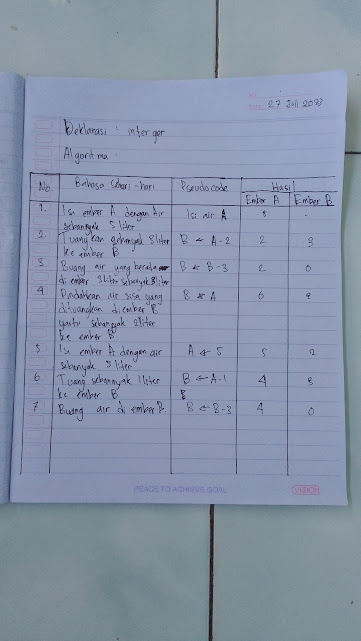 No.
Date. 27 Juli 2023
Deklarasi : interger
Algoritma :
No. Bahasa Sehari-hari Pseudocode Hasil
Ember A Ember B
1. Isi ember A dengan Air Isi air A 5 -
sebanyak 5 liter
2. Tuangkan sebanyak 3 liter B ← A-2 2 3
ke ember B
3 Buang air yang berada B ← B-3 2 0
di ember 3 liter sebanyak 3 liter
4 Pindahkan air sisa yang B ← A 0 2
dituangkan di ember B
yaitu sebanyak 2 liter
ke ember B
5 Isi ember A dengan air A ← 5 5 2
sebanyak 5 liter
6 Tuang sebannyak 1 liter B ← A-1 4 3
ke ember B B
7 Buang air di ember B. B ← B-3 4 0
PEACE TO ACHIEVE GOAL
VISION